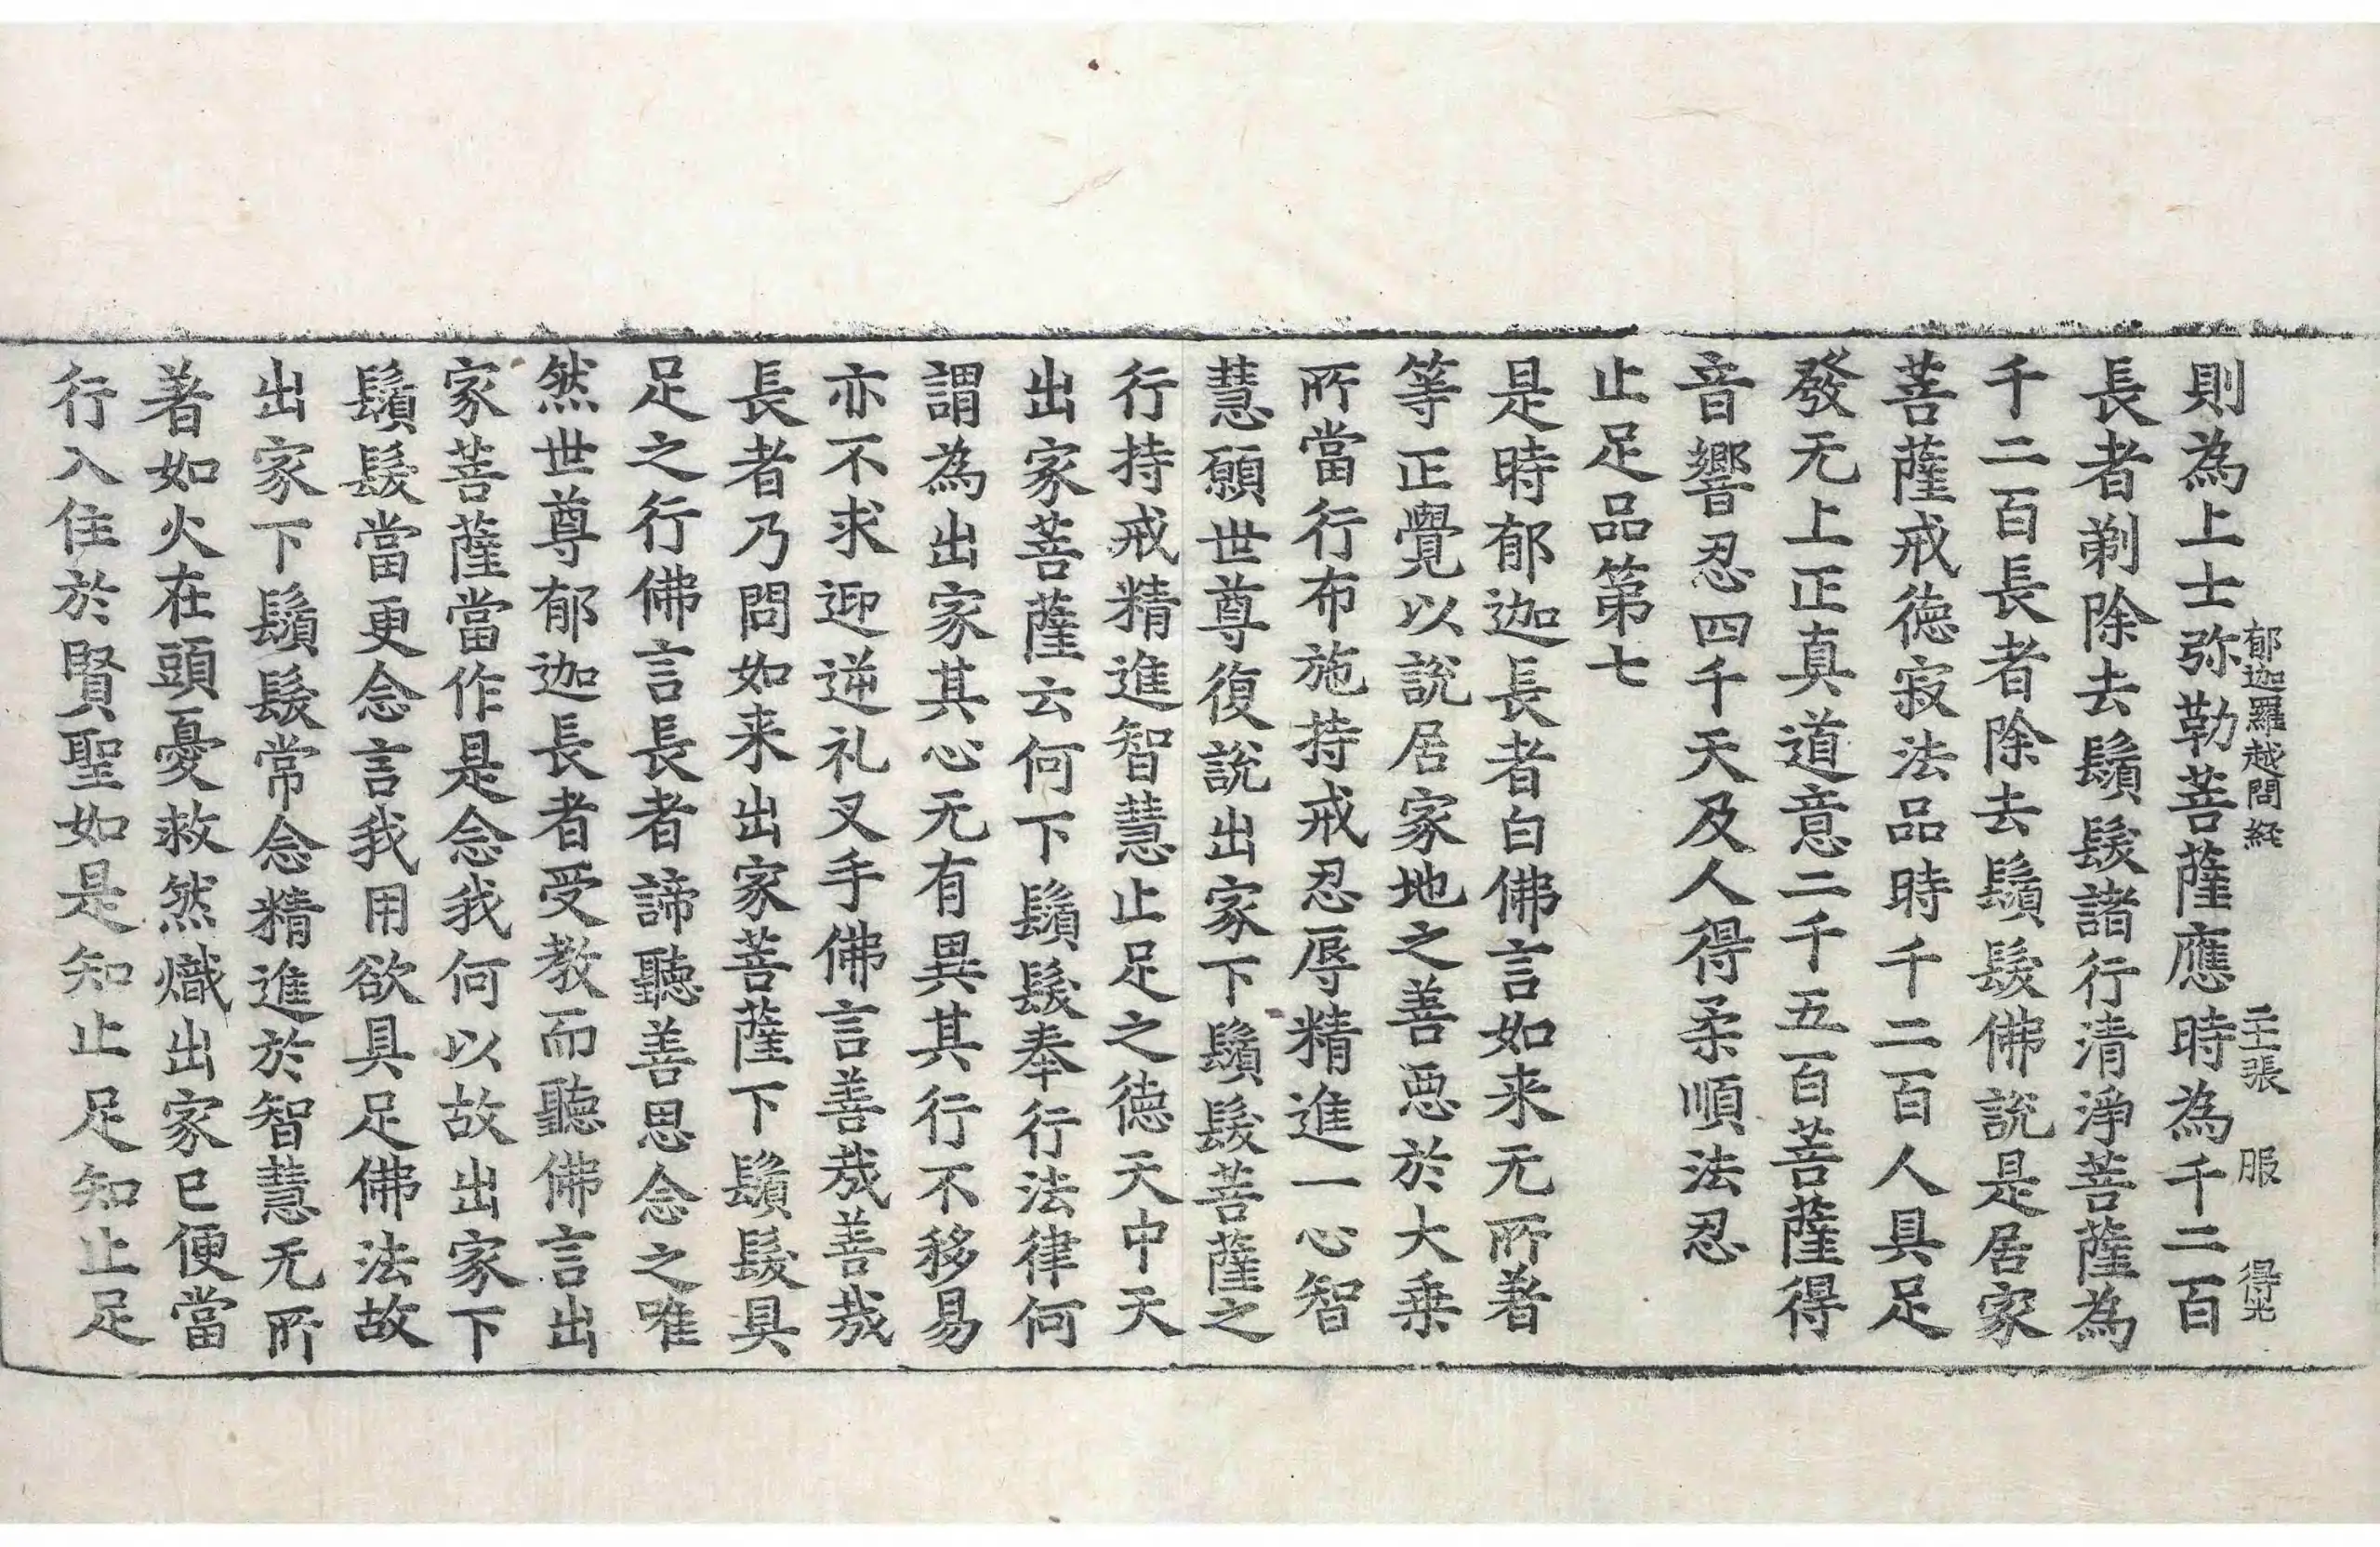 郁迦羅越問経 二十張 服 得光
則為上士弥勒菩薩應時為千二百
長者剃除去鬚髮諸行清淨菩薩為
千二百長者除去鬚髮佛說是居家
菩薩戒德寂法品時千二百人具足
發无上正真道意二千五百菩薩得
音響忍四千天及人得柔順法忍
止足品第七
是時郁迦長者白佛言如来无所著
等正覺以說居家地之善惡於大乘
所當行布施持戒忍辱精進一心智
慧願世尊復說出家下鬚髮菩薩之
行持戒精進智慧止足之德天中天
出家菩薩云何下鬚髮奉行法律何
謂為出家其心无有異其行不移易
亦不求迎逆礼叉手佛言善哉善哉
長者乃問如来出家菩薩下鬚髮具
足之行佛言長者諦聽善思念之唯
然世尊郁迦長者受教而聽佛言出
家菩薩當作是念我何以故出家下
鬚髮當更念言我用欲具足佛法故
出家下鬚髮常念精進於智慧无所
著如火在頭憂救然熾出家已便當
行入住於賢聖如是知止足知止足